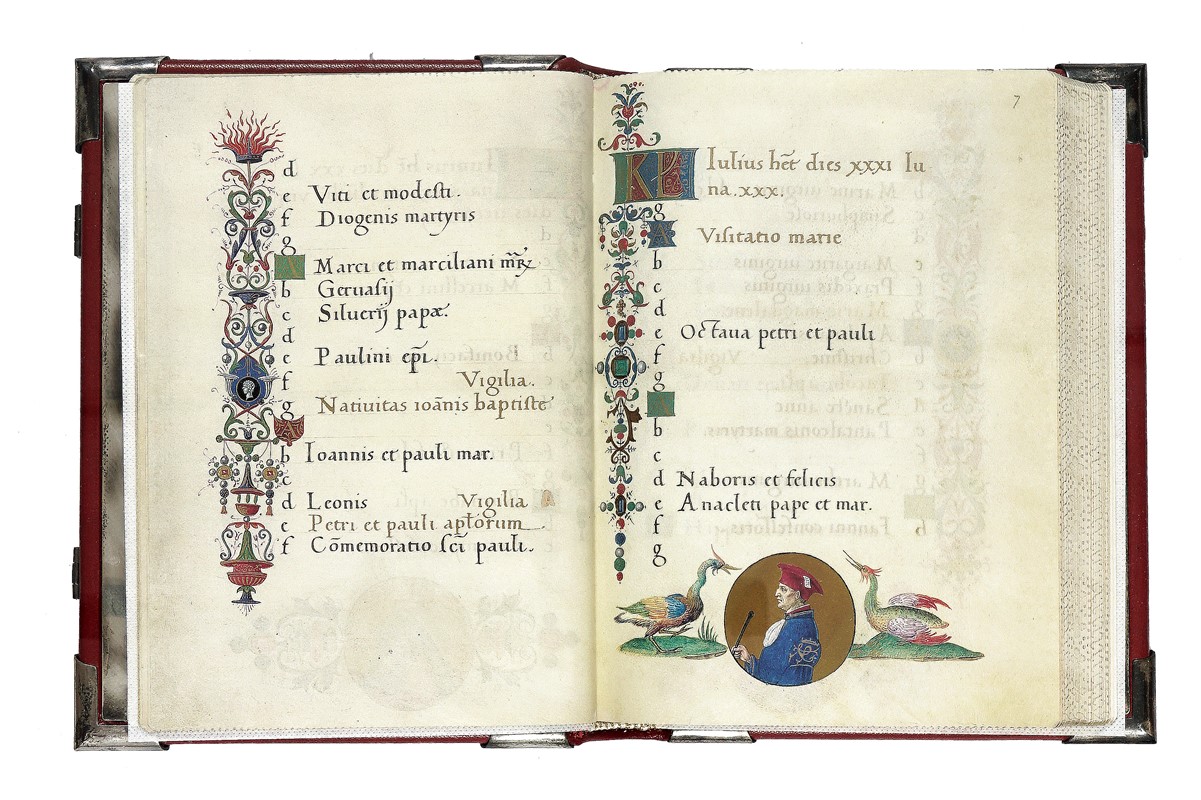 d
e Viti et modesti.
f Diogenis martyris
g
A Marci et marciliani m̄r̄ꝝ
b Geruasij
c Siluerij papæ.
d
e Paulini ep̄i.
f Vigilia.
g Natiuitas ioānis baptiste
A
b Ioannis et pauli mar.
c
d Leonis Vigilia
e Petri et pauli apt̄orum
f Cōmemoratio sc̄i pauli.
7
KL Iulius hēt dies xxxi Iu
na . xxx.
g
A Visitatio marie
b
c
d
e Octaua petri et pauli
f
g
b
c
d Naboris et felicis
e Anacleti pape et mar.
f
g